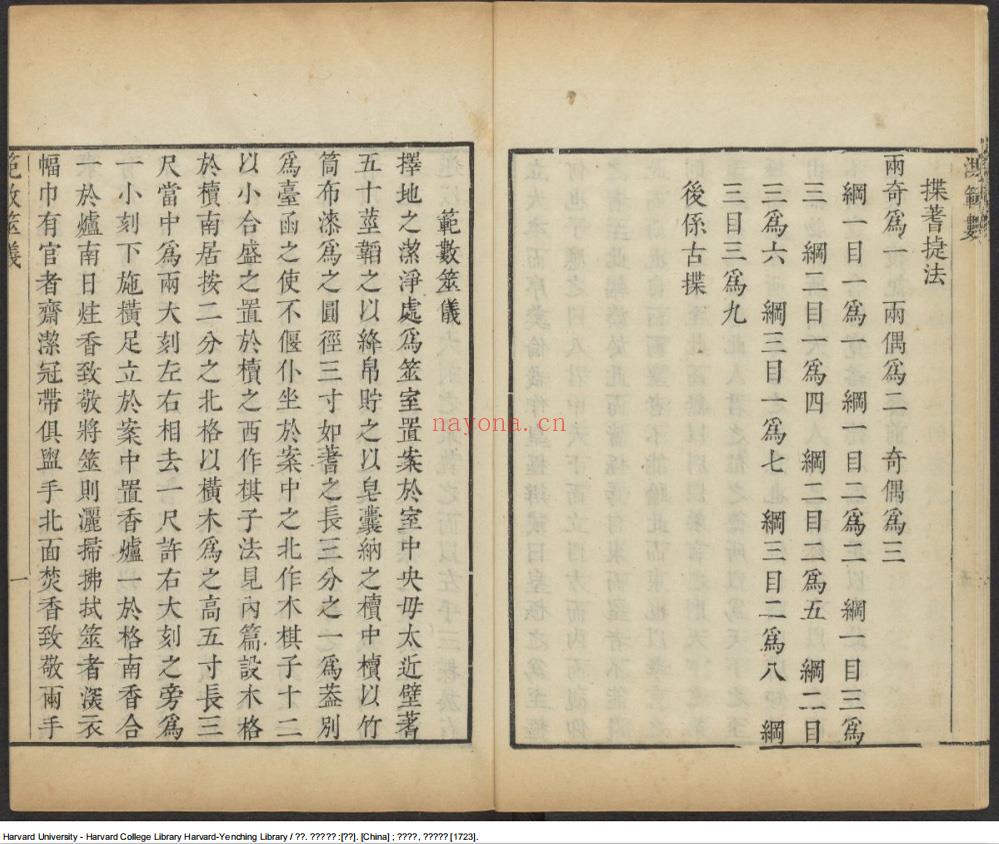 洪範數
揲蓍捷法
兩奇爲一　兩偶爲二　奇偶爲三
綱一目一爲一　綱一目二爲二　綱一目三爲
三　綱二目一爲四　綱二目二爲五　綱二目
三爲六　綱三目一爲七　綱三目二爲八　綱
三目三爲九
後係古揲
範數筮儀
擇地之潔淨處爲筮室置案於室中央毋太近壁蓍
五十莖韜之以絳帛貯之以皂囊納之櫝中櫝以竹
筒布漆爲之圓徑三寸如蓍之長三分之一爲蓋別
爲臺函之使不偃仆坐於案中之北作木棋子十二
以小合盛之置於櫝之西作棋子法見內篇設木格
於櫝南居按二分之北格以橫木爲之高五寸長三
尺當中爲兩大刻左右相去一尺許右大刻之旁爲
一小刻下施橫足立於案中置香爐一於格南香合
一於爐南日炷香致敬將筮則灑掃拂拭筮者深衣
幅巾有官者齋潔冠帶俱盥手北面焚香致敬兩手
範數筮儀
一
nayona.cn
Harvard University - Harvard College Library Harvard-Yenching Library / ??. ????? :[??]. [China] ; ????, ????? [1723].